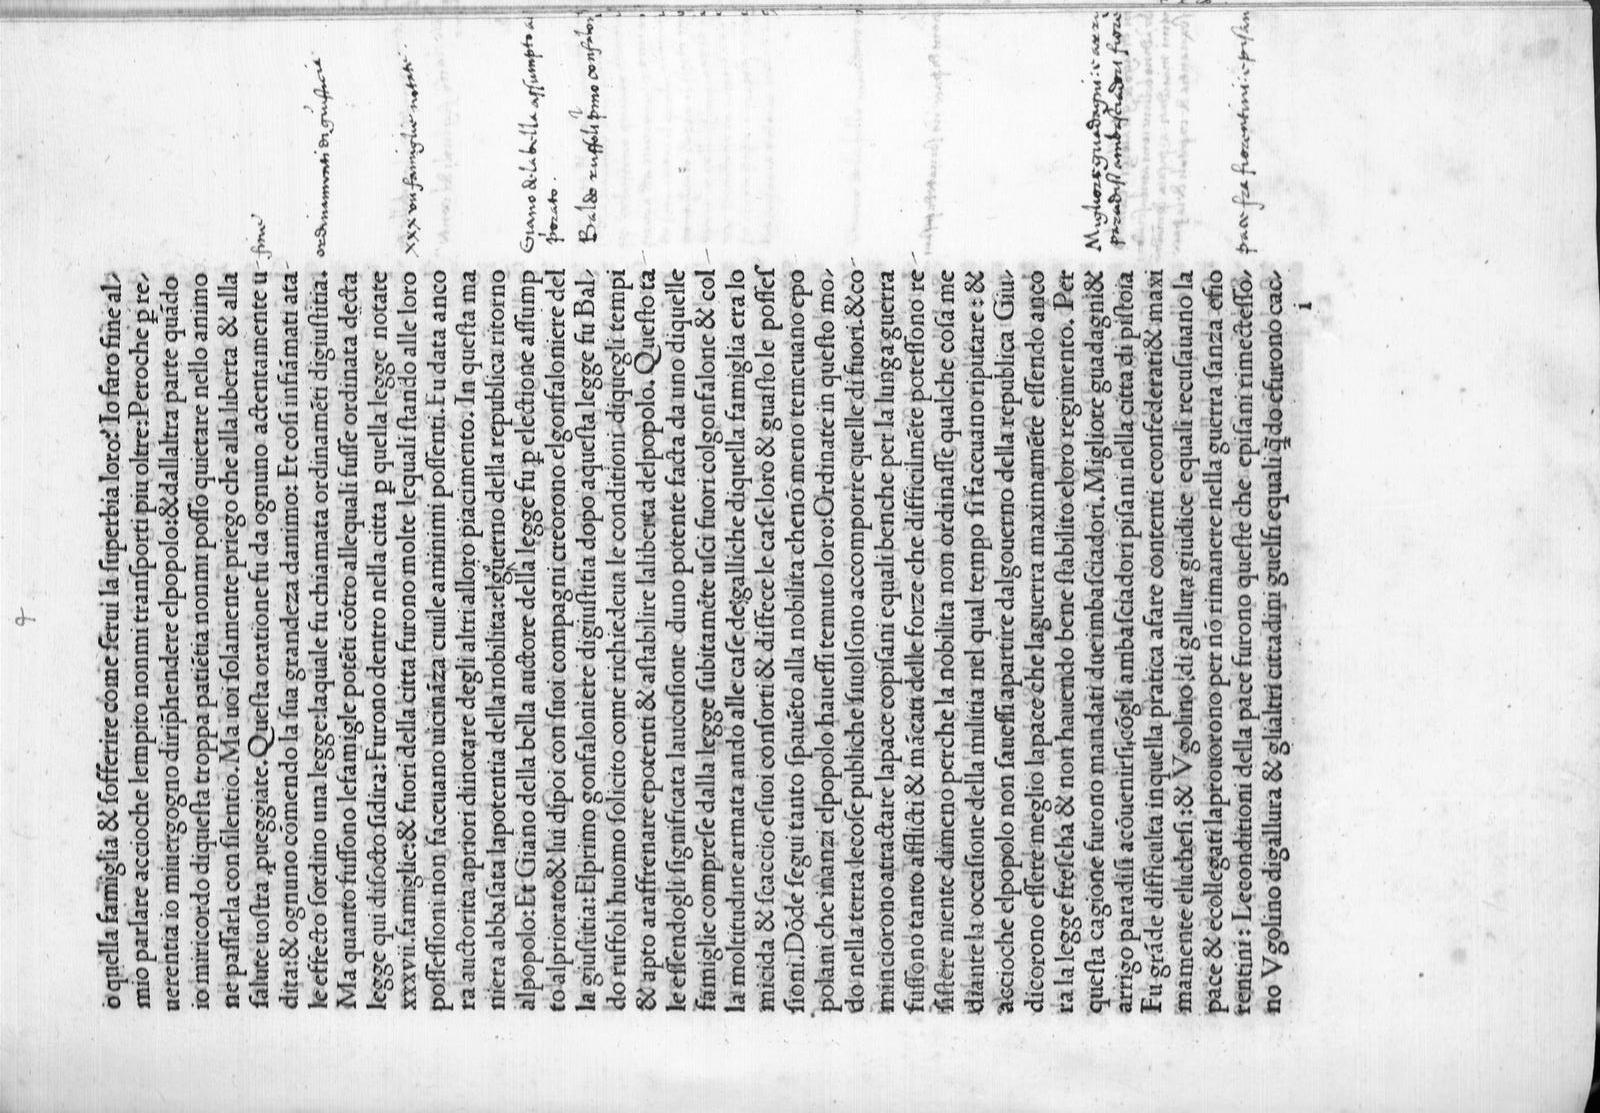 o quella famiglia & sofferire come serui la superbia loro? Io faro fine al,
mio parlare accioche lempito nonmi transporti piu oltre: Peroche p̲ re,
uerentia io miuergogno dirip̄hendere elpopolo: & dallaltra parte quādo
io miricordo diquesta troppa patiētia nonmi posso quietare nello animo
ne passarla con silentio. Ma uoi solamente priego che alla liberta & alla
salute uostra ꝓueggiate. Questa oratione fu da ognuno actentamente u
dita: & ognuno comendo la sua grandeza danimo: Et cosi infiāmati ata
le effecto sordino una legge: laquale fu chiamata ordinamēti digiustitia.
Ma quanto fussono lefamigle potēti cōtro allequali fusse ordinata decta
legge qui disocto sidira: Furono dentro nella citta p̲ quella legge notate
xxxvii. famiglie: & fuori della citta furono molte lequali stando alle loro
possessioni non faceuano uicināza ciuile animimi possenti. Fu data anco
ra auctorita apriori dinotare degli altri alloro piacimento. In questa ma
niera abbassata lapotentia della nobilita: elguerno della republica ritorno
alpopolo: Et Giano della bella auctore della legge fu p̲ electione assump
to alpriorato & lui dipoi con suoi compagni creorono elgonfaloniere del
la giustitia: Elprimo gonfaloniere digiustitia dopo aquesta legge fu Bal,
do ruffoli huomo solicito come richiedeua le conditioni diquegli tempi
& apto araffrenare epotenti & astabilire laliberta delpopolo. Questo ta
le essendogli significata lauccisione duno potente facta da uno diquelle
famiglie comprese dalla legge subitamēte usci fuori colgonfalone & col
la moltitudine armata andò alle case de galliche diquella famiglia era lo
micida & scaccio esuoi consorti & disfece le case loro & guasto le posses
sioni. Dōde segui tanto spauēto alla nobilita chenō meno temeuano epo
polani che inanzi elpopolo hauessi temuto loro: Ordinate in questo mo,
do nella terra lecose publiche siuolsono accomporre quelle di fuori. & co
minciorono atractare lapace copisani equali benche per la lunga guerra
fussono tanto afflicti & mācati delle forze che difficilmēte potessono re
sistere niente dimeno perche la nobilita non ordinasse qualche cosa me
diante la occasione della militia nel qual tempo si faceuano riputare: &
accioche elpopolo non sauessi apartire dalgouerno della republica Giu,
dicorono essere meglio lapace che laguerra maximamēte essendo anco
ra la legge frescha & non hauendo bene stabilito eloro regimento. Per
questa cagione furono mandati due imbasciadori. Migliore guadagni &
arrigo paradisi acōuenirsi, cōgli ambasciadori pisani nella citta di pistoia
Fu grāde difficulta inquella pratica afare contenti econfederati & maxi
mamente eluchesi: & Vgolino, di gallura giudice equali recusauano la
pace & ecollegati laprouorono per nō rimanere nella guerra sanza essō
rentini: Leconditioni della pace furono queste che episani rimectesso,
no Vgolino digallura & glialtri cittadini guelfi equali q̄do efurono cac,
i
ordinamenti di giustitia
xxxvii famiglie notate
Giano de labella assumpto al
priorato.
Baldo ruffoli primo confalon
Migliore guadagni: & arri
paradisi ambasciadori
pace fra fiorentini e pisan